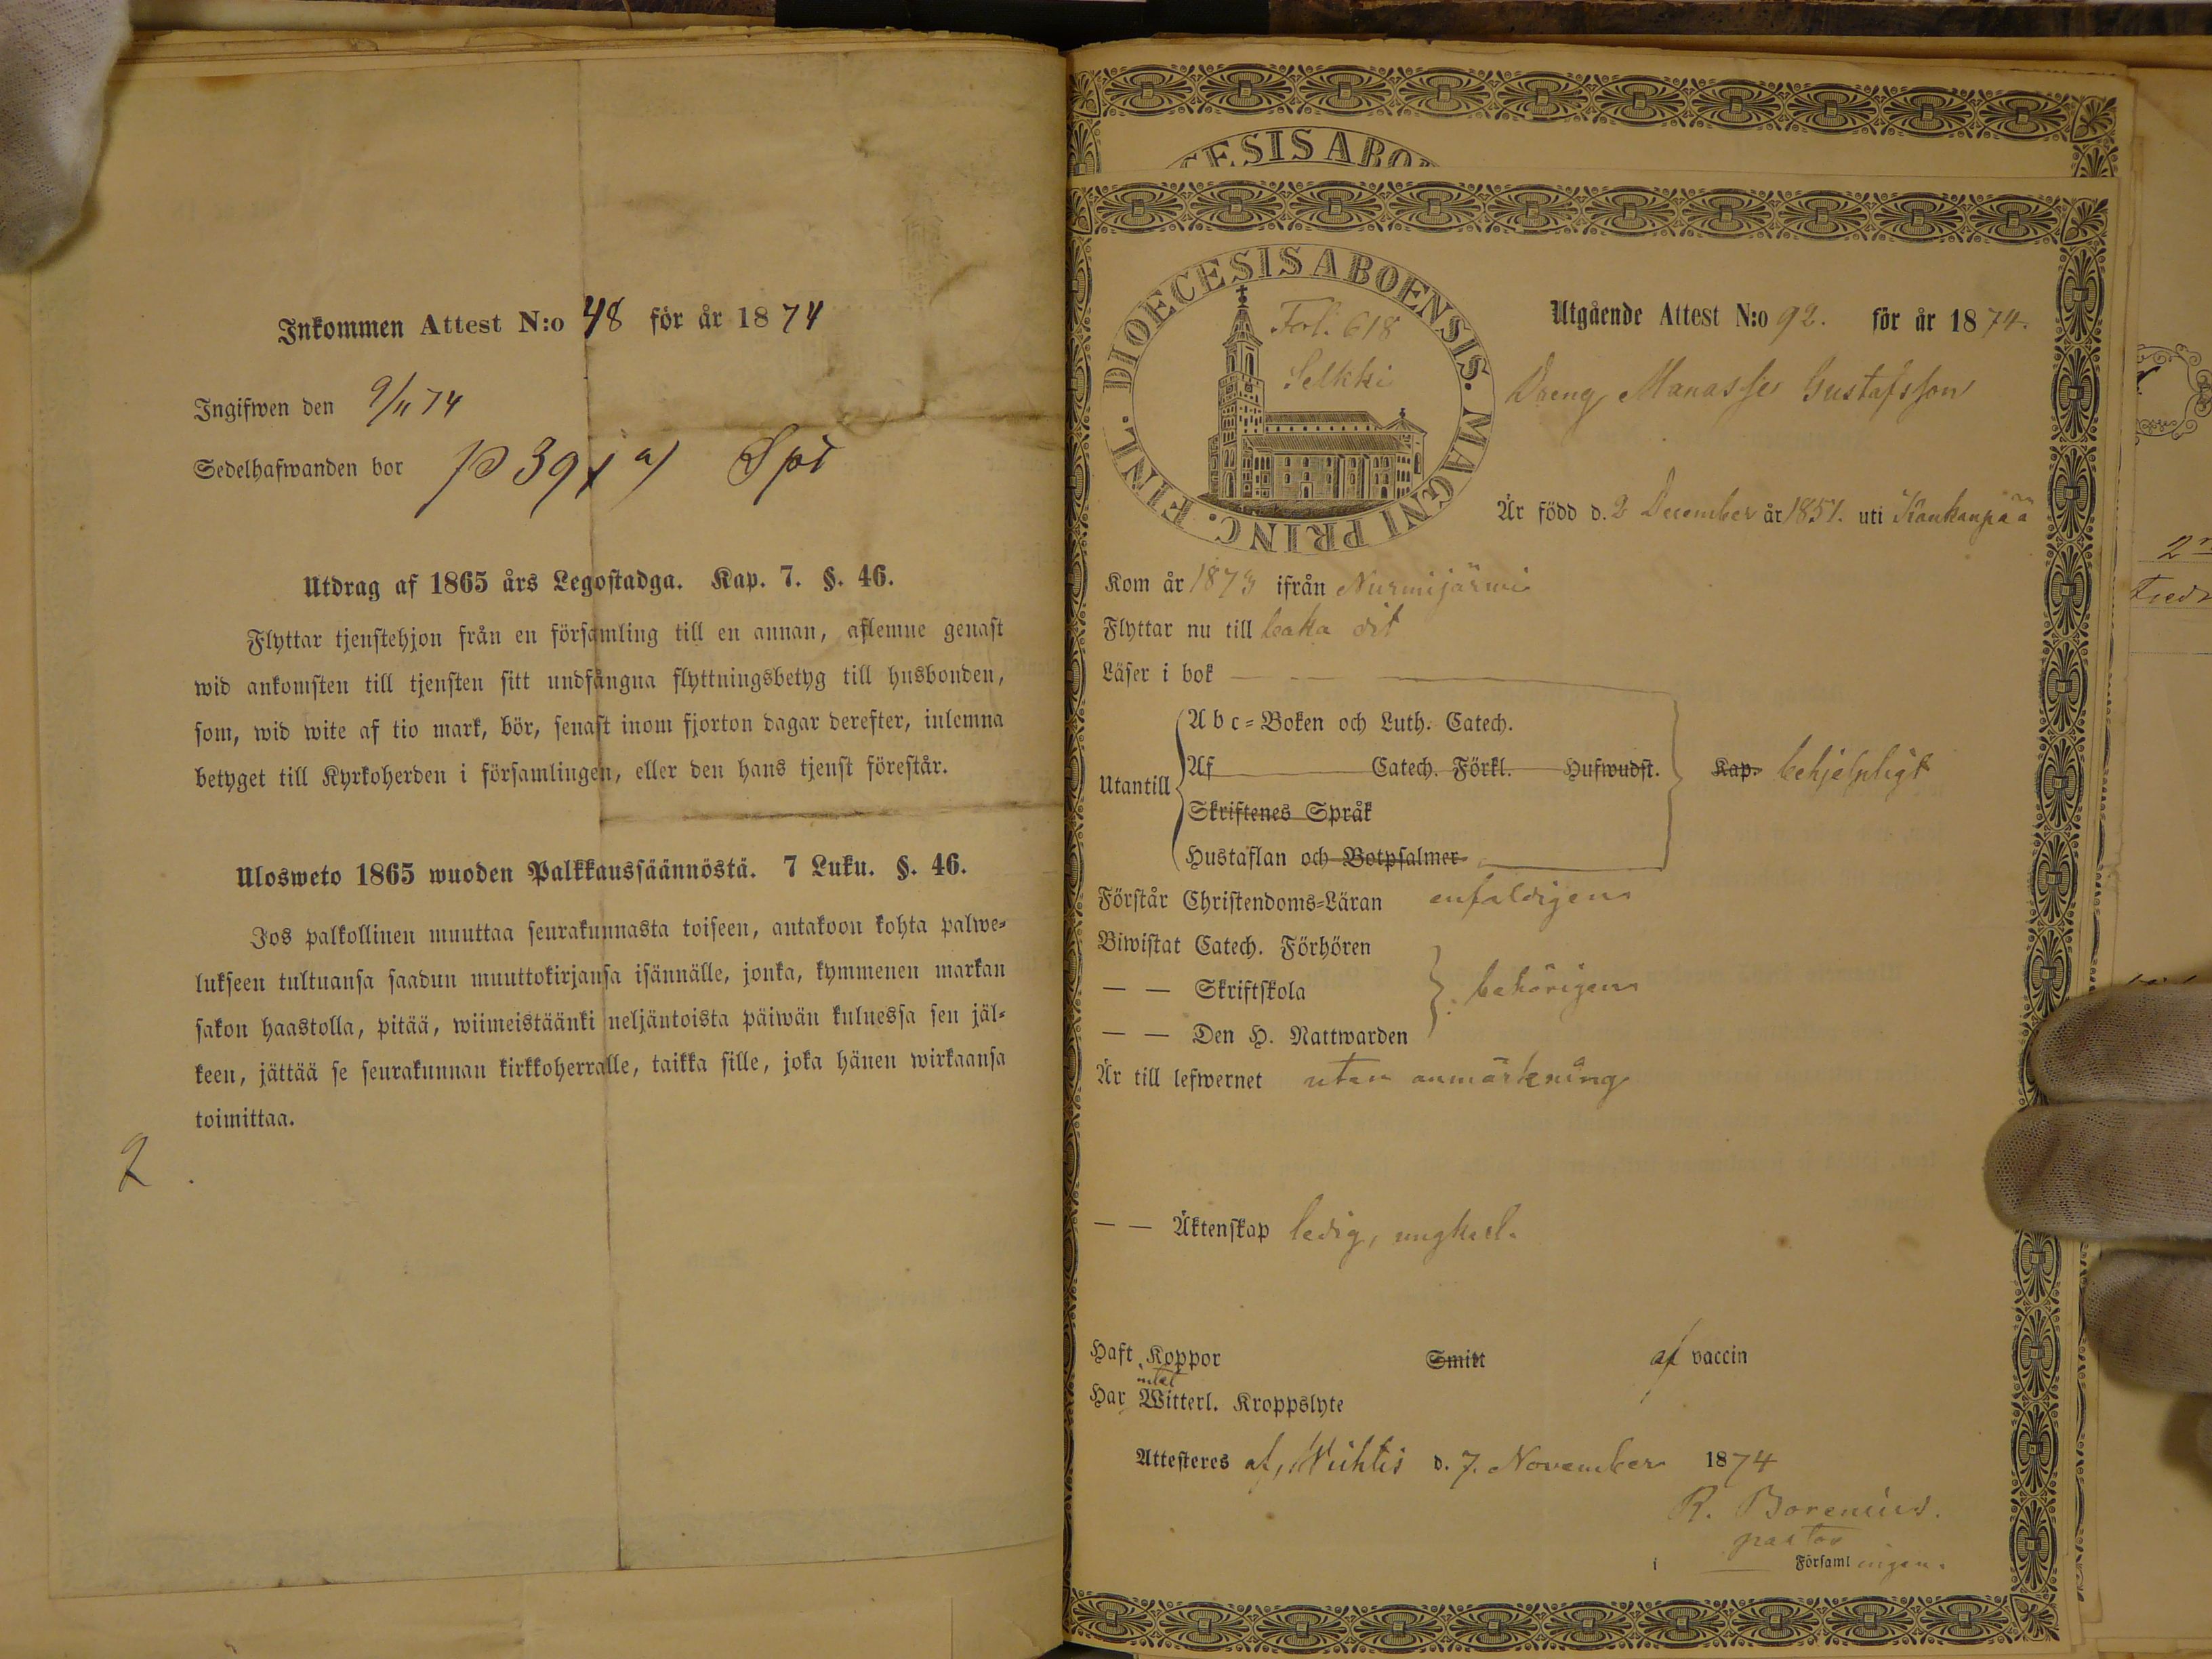 Inkommen Attest N:o 48 för år 1874
Ingifwen den 9/11 74
Sedelhafwanden bor
Utdrag af 1865 års Legostadga. Kap. 7. §. 46.
Flyttar tjenstehjon från en församling till en annan, aflemne genast
wid ankomsten till tjensten sitt undfångna flyttningsbetyg till husbonden,
som, wid wite af tio mark, bör, senast inom fjorton dagar derefter, inlemna
betyget till Kyrkoherden i församlingen, eller den hans tjenst förestår.
Ulosweto 1865 wuoden Palkkaussäännöstä. 7 Luku. §. 46.
Jos palkollinen muuttaa seurakunnasta toiseen, antakoon kohta palwe-
lukseen tultuansa saadun muuttokirjansa isännälle, jonka, kymmenen markan
sakon haastolla, pitää, wiimeistäänki neljäntoista päiwän kuluessa sen jäl-
keen, jättää se seurakunnan kirkkoherralle, taikka sille, joka hänen wirkaansa
toimittaa.
DIOECESIS ABOENSIS. MAGNI PRINC. FINL.
Fol. 618
Selkki
Utgående Attest N:o 92. för år 1874.
Dreng Manasse Gustafsson
Är född d. 2 December år 1851. uti Kankanpää
Kom år 1873 ifrån Nurmijärwi
Flyttar nu till baka dit
Läser i bok
Utantill
Abc-Boken och Luth. Catech.
Af Catech. Förkl. Hufwudst. Kap. behjelpligt
Skriftenes Språk
Hustaflan och Botpsalmer
Förstår Christendoms-Läran enfaldigen
Biwistat Catech. Förhören
— — Skriftskola behörigen
— — Den H. Nattwarden
Är till lefwernet utan anmärkning
— — Äktenskap ledig, ungkarl.
Haft Koppor Smitt af vaccin
intet
Har Witterl. Kroppslyte
Attesteres af, Wichtis d. 7. November 1874
R. Borenius.
pastor
i Församlingen.